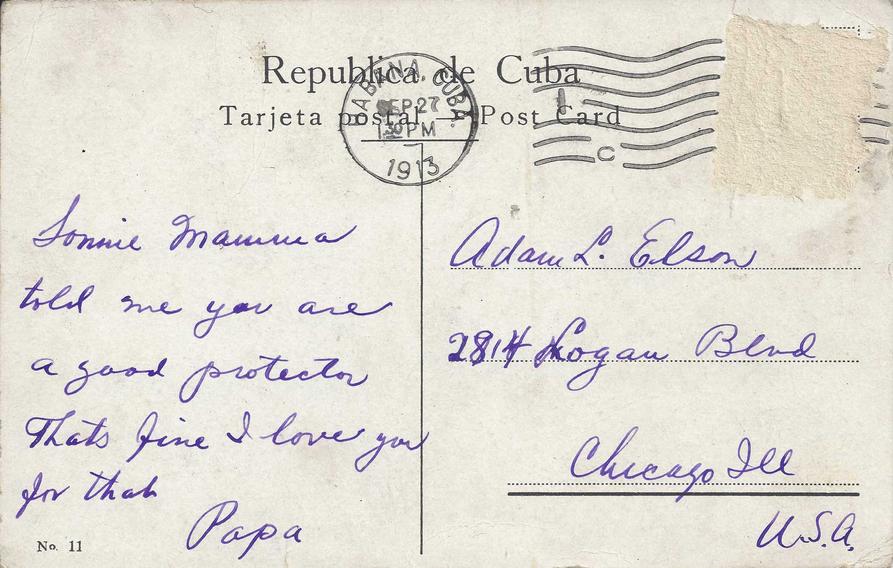 Republica de Cuba
Tarjeta postal — Post Card
HABANA, CUBA.
SEP 27
1 30 PM
1913
C
Sonnie Mamma
told me you are
a good protector
Thats fine I love you
for that
Papa
Adam L. Elson
2814 Logan Blvd
Chicago Ill
U.S.A.
No. 11